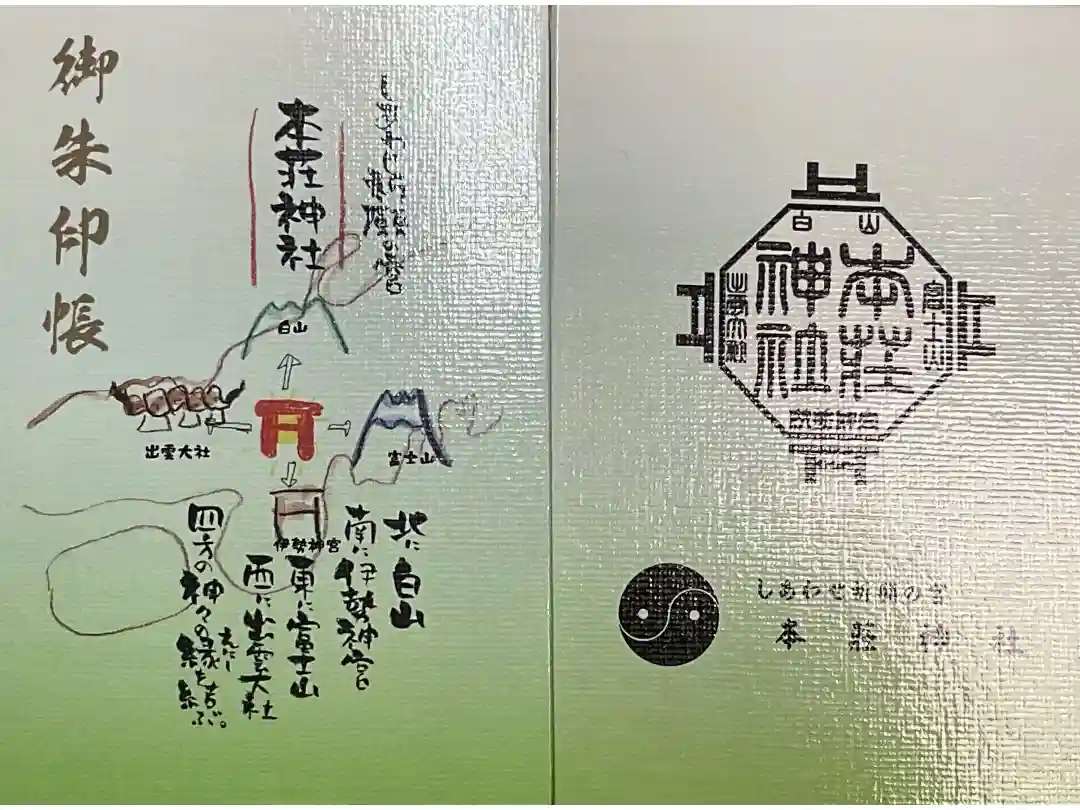 御朱印帳
本荘神社
白山
出雲大社
富士山
伊勢神宮
北に白山
南に伊勢神宮
東に富士山
西に出雲大社
四方の神々の縁を結ぶ。
えにし
白山
本荘
神社
富士山
出雲大社
しあわせ祈願の宮
本莊神社